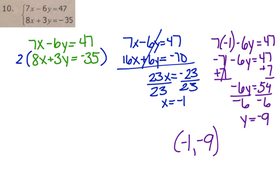 10. { 7x-6y=47
8x+3y=-35
7x-6y=47
2(8x+3y=-35)
7x-6y=47
16x+6y=-70
23x=-23
23 23
x=-1
7(-1)-6y=47
-7-6y=47
+7 +7
-6y=54
-6 -6
y=-9
(-1,-9)